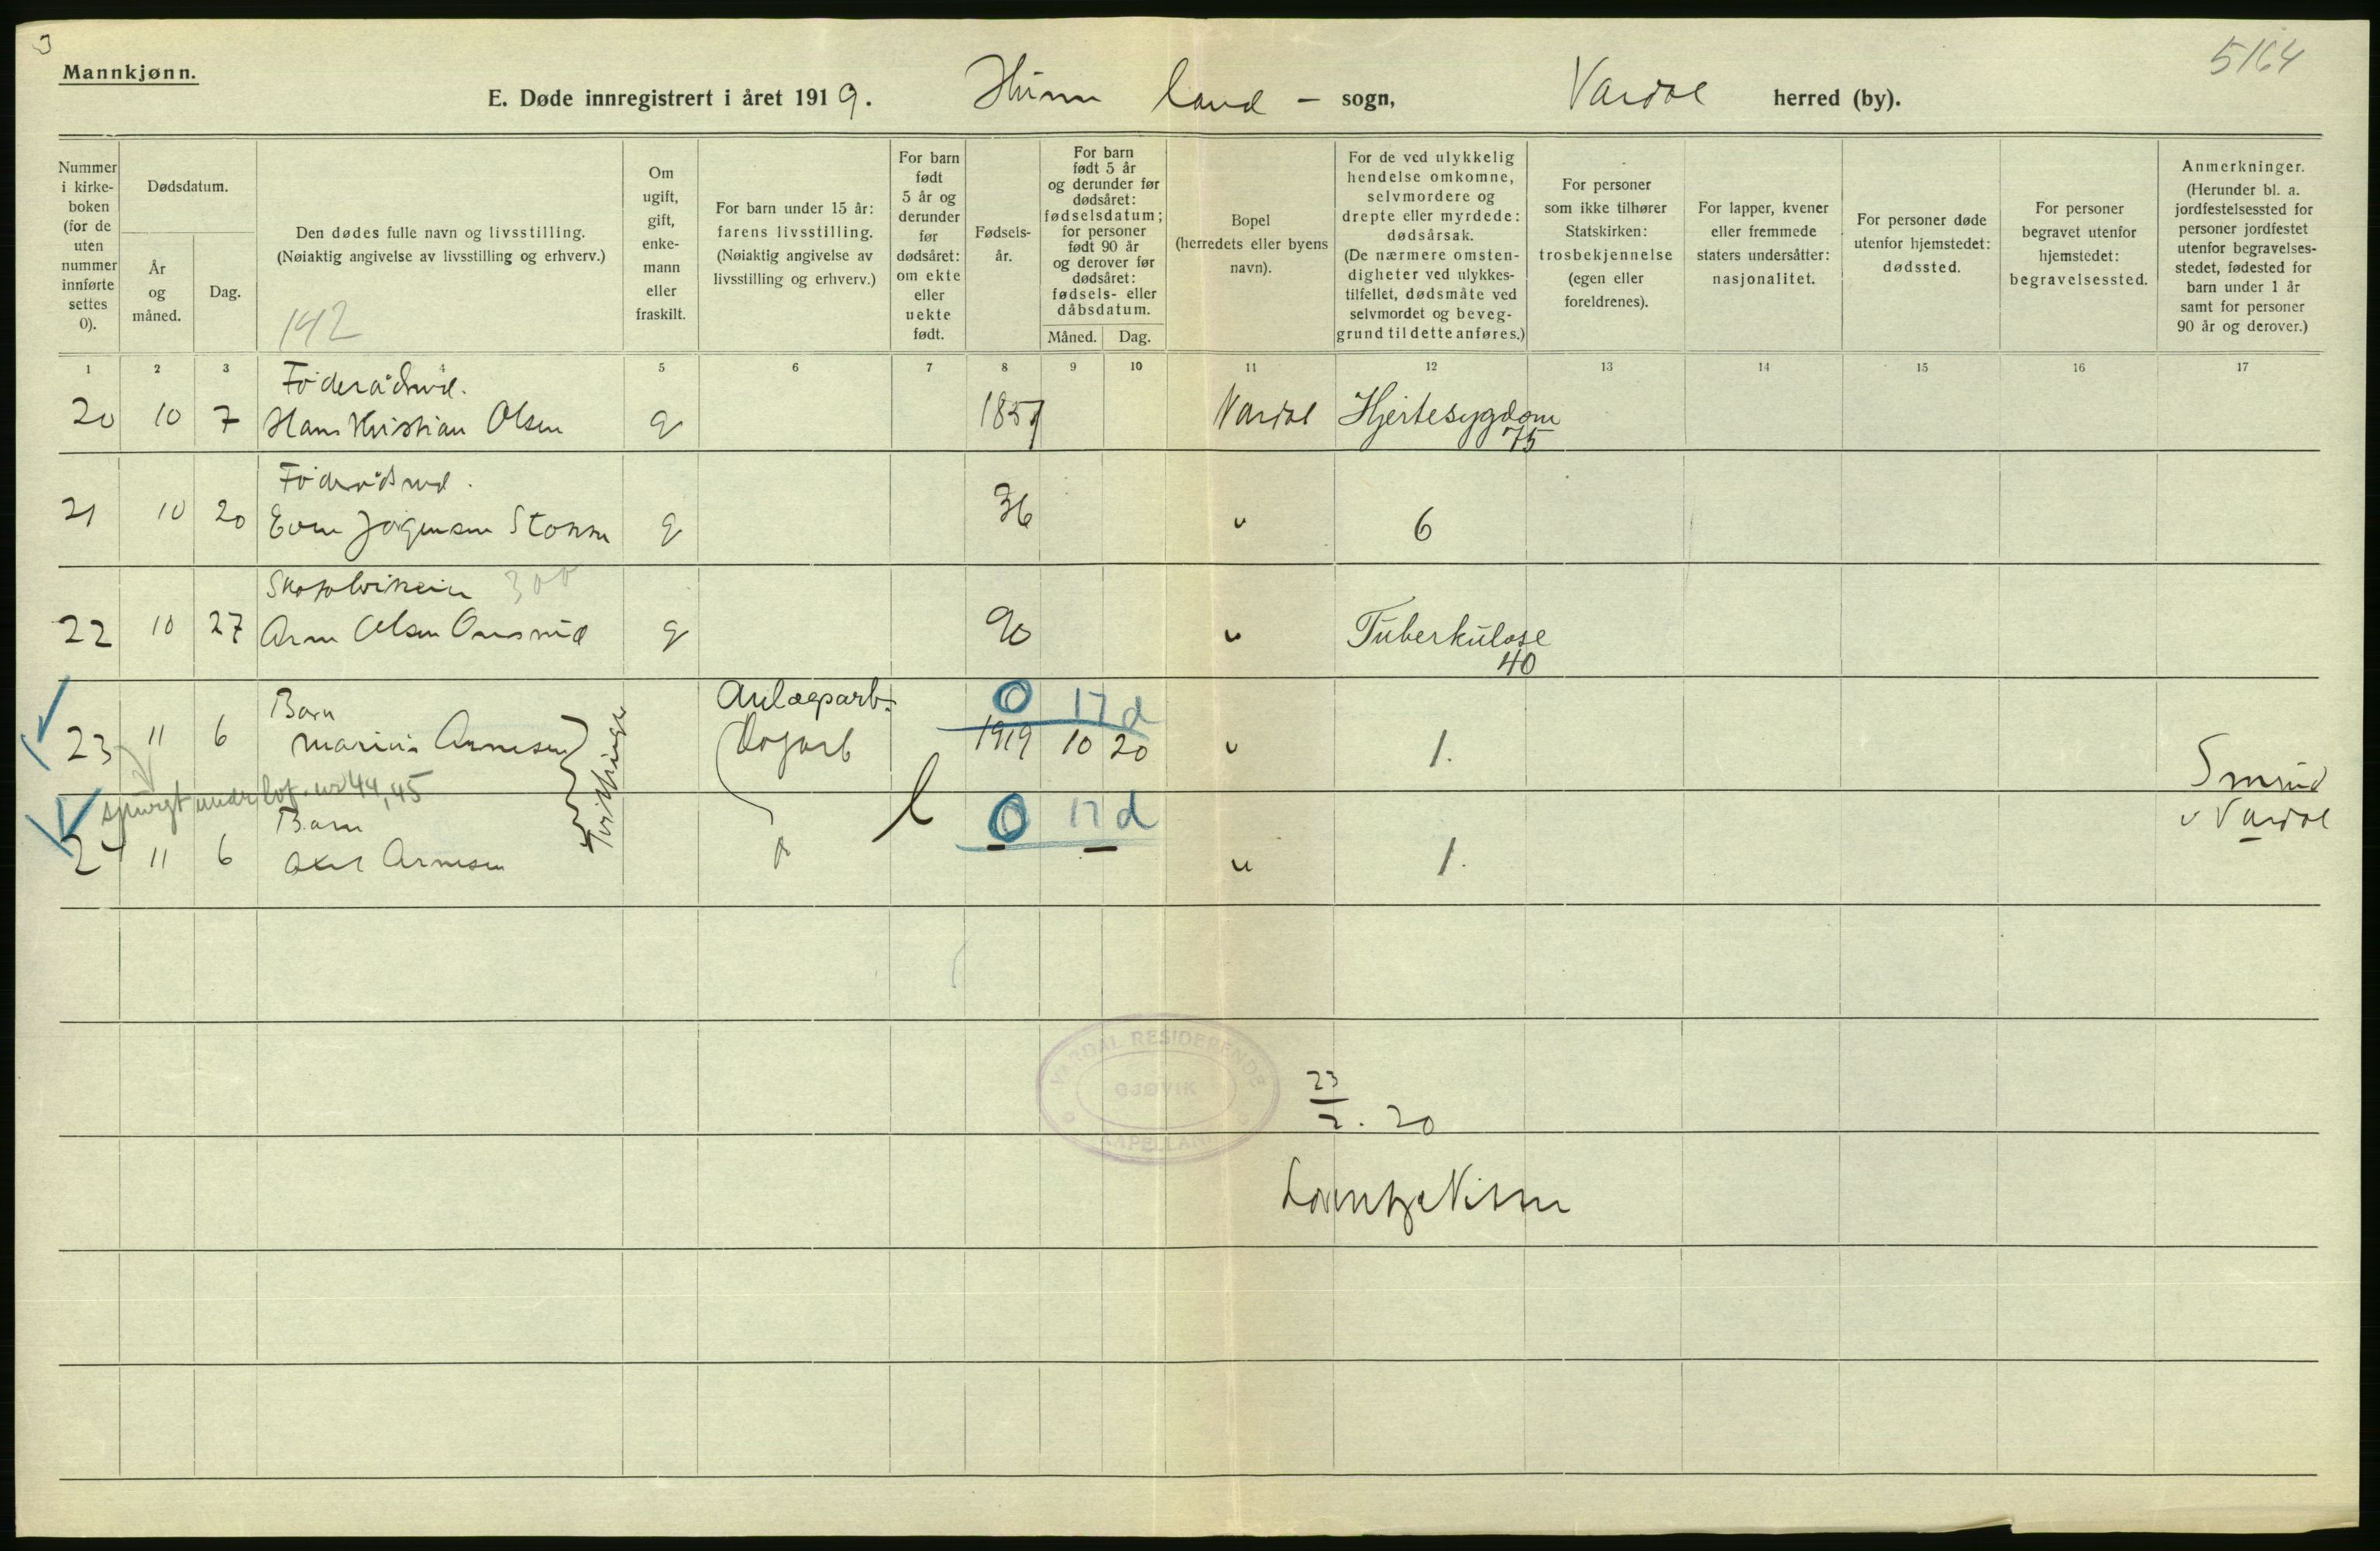 Mannkjønn.
5164
E. Døde innregistrert i året 1919. Hunn land - sogn, Vardal herred (by).
Nummer i kirke-boken (for de uten nummer innførte settes 0).
Dødsdatum.
År og måned.
Dag.
Den dødes fulle navn og livsstilling.
(Nøiaktig angivelse av livsstilling og erhverv.)
142
Om ugift, gift, enke-mann eller fraskilt.
For barn under 15 år: farens livsstilling.
(Nøiaktig angivelse av livsstilling og erhverv.)
For barn født 5 år og derunder før dødsåret: om ekte eller uekte født.
Fødsels-år.
For barn født 5 år og derunder før dødsåret: fødselsdatum; for personer født 90 år og derover før dødsåret: fødsels- eller dåbsdatum.
Måned.
Dag.
Bopel (herredets eller byens navn).
For de ved ulykkelig hendelse omkomne, selvmordere og drepte eller myrdede: dødsårsak.
(De nærmere omsten-digheter ved ulykkes-tilfellet, dødsmåte ved selvmordet og beveg-grund til dette anføres.)
For personer som ikke tilhører Statskirken: trosbekjennelse (egen eller foreldrenes).
For lapper, kvener eller fremmede staters undersåtter: nasjonalitet.
For personer døde utenfor hjemstedet: dødssted.
For personer begravet utenfor hjemstedet: begravelsessted.
Anmerkninger.
(Herunder bl. a. jordfestelsessted for personer jordfestet utenfor begravelses-stedet, fødested for barn under 1 år samt for personer 90 år og derover.)
1 2 3 5 6 7 8 9 10 11 12 13 14 15 16 17
Føderådsmd.
20 10 7 Hans Kristian Olsen g 1851 Vardal Hjertesygdom
75
Føderådsmd.
21 10 20 Even Jørgensen g 36 " 6
300
22 10 27 Arne Olsen g 90 " Tuberkulose
40
Barn Anlægsarb. 0 17 d
23 11 6 Marius Arnesen 1919 10 20 " 1.
spurgt under lof. nr 44, 45
Tvillinger
Smrud
v Vardal
Barn 0 17 d
24 11 6 Axel Arnesen " 1.
VARDAL RESIDERENDE
GJØVIK
KAPELLANI
23/2. 20
Lorentz Nissen